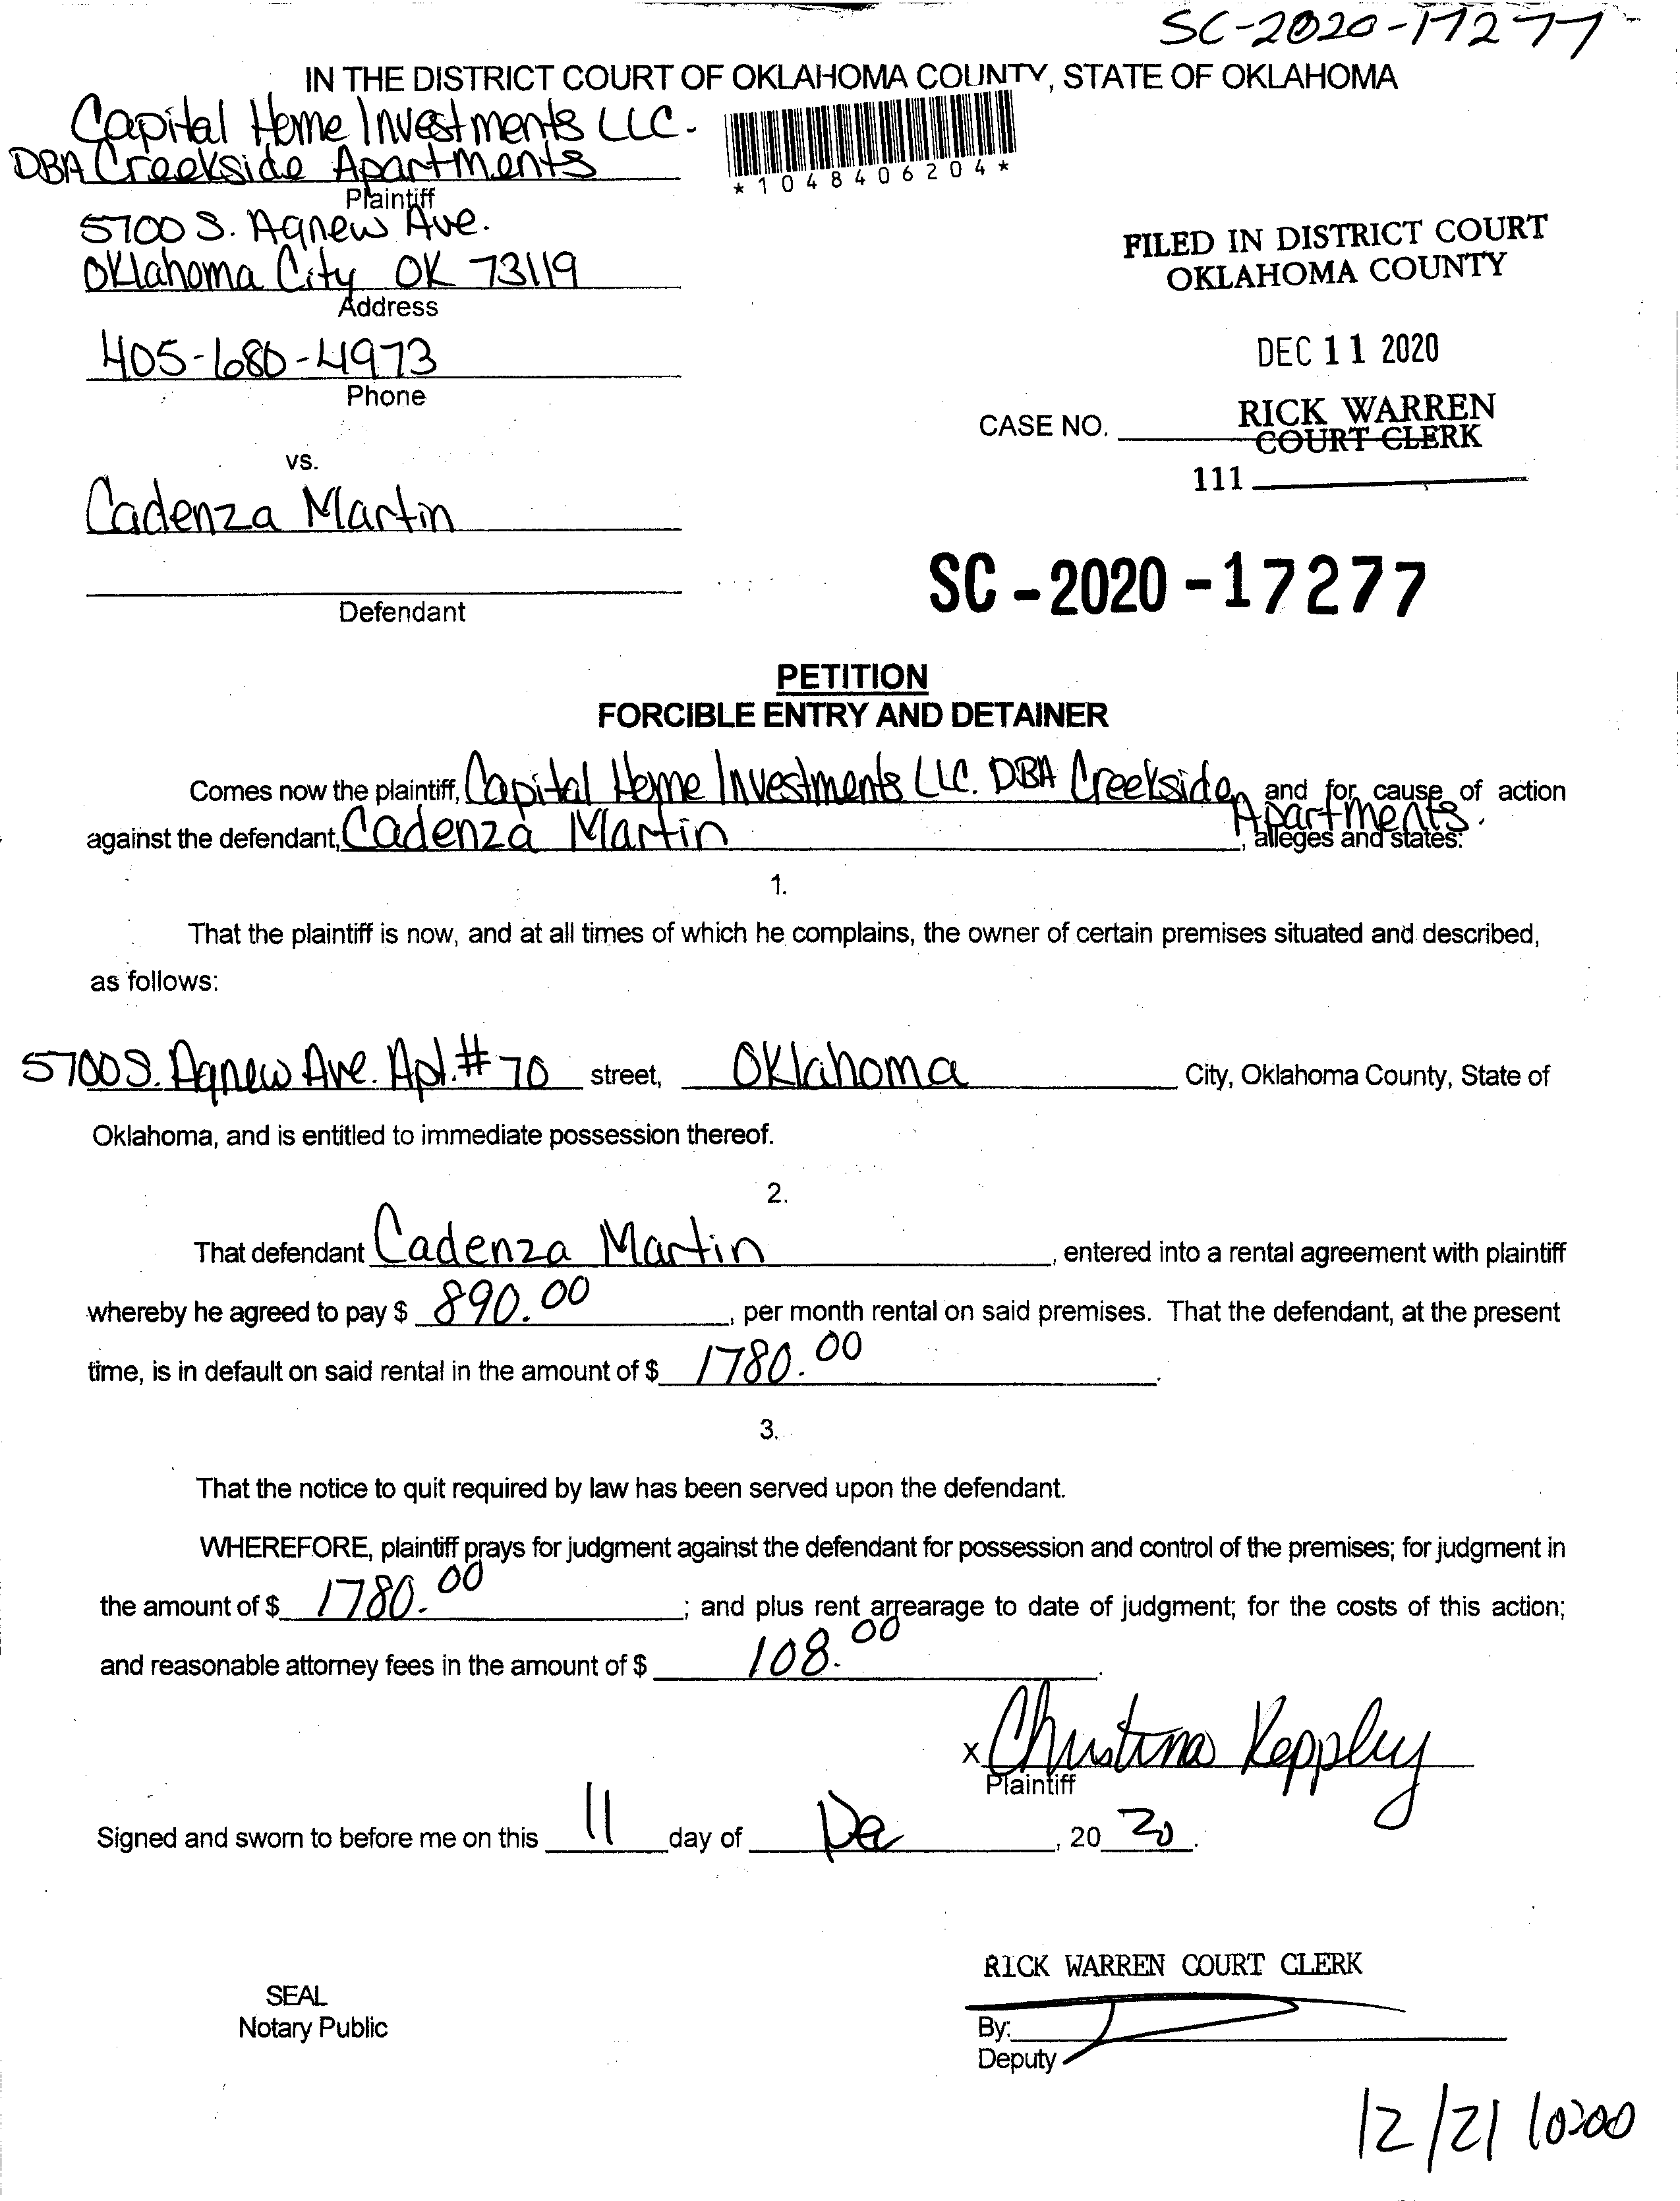 SC-2020-17277
IN THE DISTRICT COURT OF OKLAHOMA COUNTY, STATE OF OKLAHOMA
Capital Home Investments LLC.
DBA Creekside Apartments
Plaintiff
*1048406204*
5700 S. Agnew Ave.
Oklahoma City OK 73119
Address
FILED IN DISTRICT COURT
OKLAHOMA COUNTY
405-680-4973
Phone
DEC 11 2020
CASE NO.
RICK WARREN
COURT CLERK
111
vs.
Cadenza Martin
Defendant
SC-2020-17277
PETITION
FORCIBLE ENTRY AND DETAINER
Comes now the plaintiff, Capital Home Investments LLC. DBA Creekside Apartments. and for cause of action
against the defendant, Cadenza Martin, alleges and states:
1.
That the plaintiff is now, and at all times of which he complains, the owner of certain premises situated and described,
as follows:
5700 S. Agnew Ave. Apt. # 70 street, Oklahoma City, Oklahoma County, State of
Oklahoma, and is entitled to immediate possession thereof.
2.
That defendant Cadenza Martin, entered into a rental agreement with plaintiff
whereby he agreed to pay $ 890.00, per month rental on said premises. That the defendant, at the present
time, is in default on said rental in the amount of $ 1780.00.
3.
That the notice to quit required by law has been served upon the defendant.
WHEREFORE, plaintiff prays for judgment against the defendant for possession and control of the premises; for judgment in
the amount of $ 1780.00; and plus rent arrearage to date of judgment; for the costs of this action;
and reasonable attorney fees in the amount of $ 108.00.
x Christina Keppley
Plaintiff
Signed and sworn to before me on this 11 day of Dec, 20 20.
RICK WARREN COURT CLERK
SEAL
Notary Public
By:
Deputy
12/21 10:00